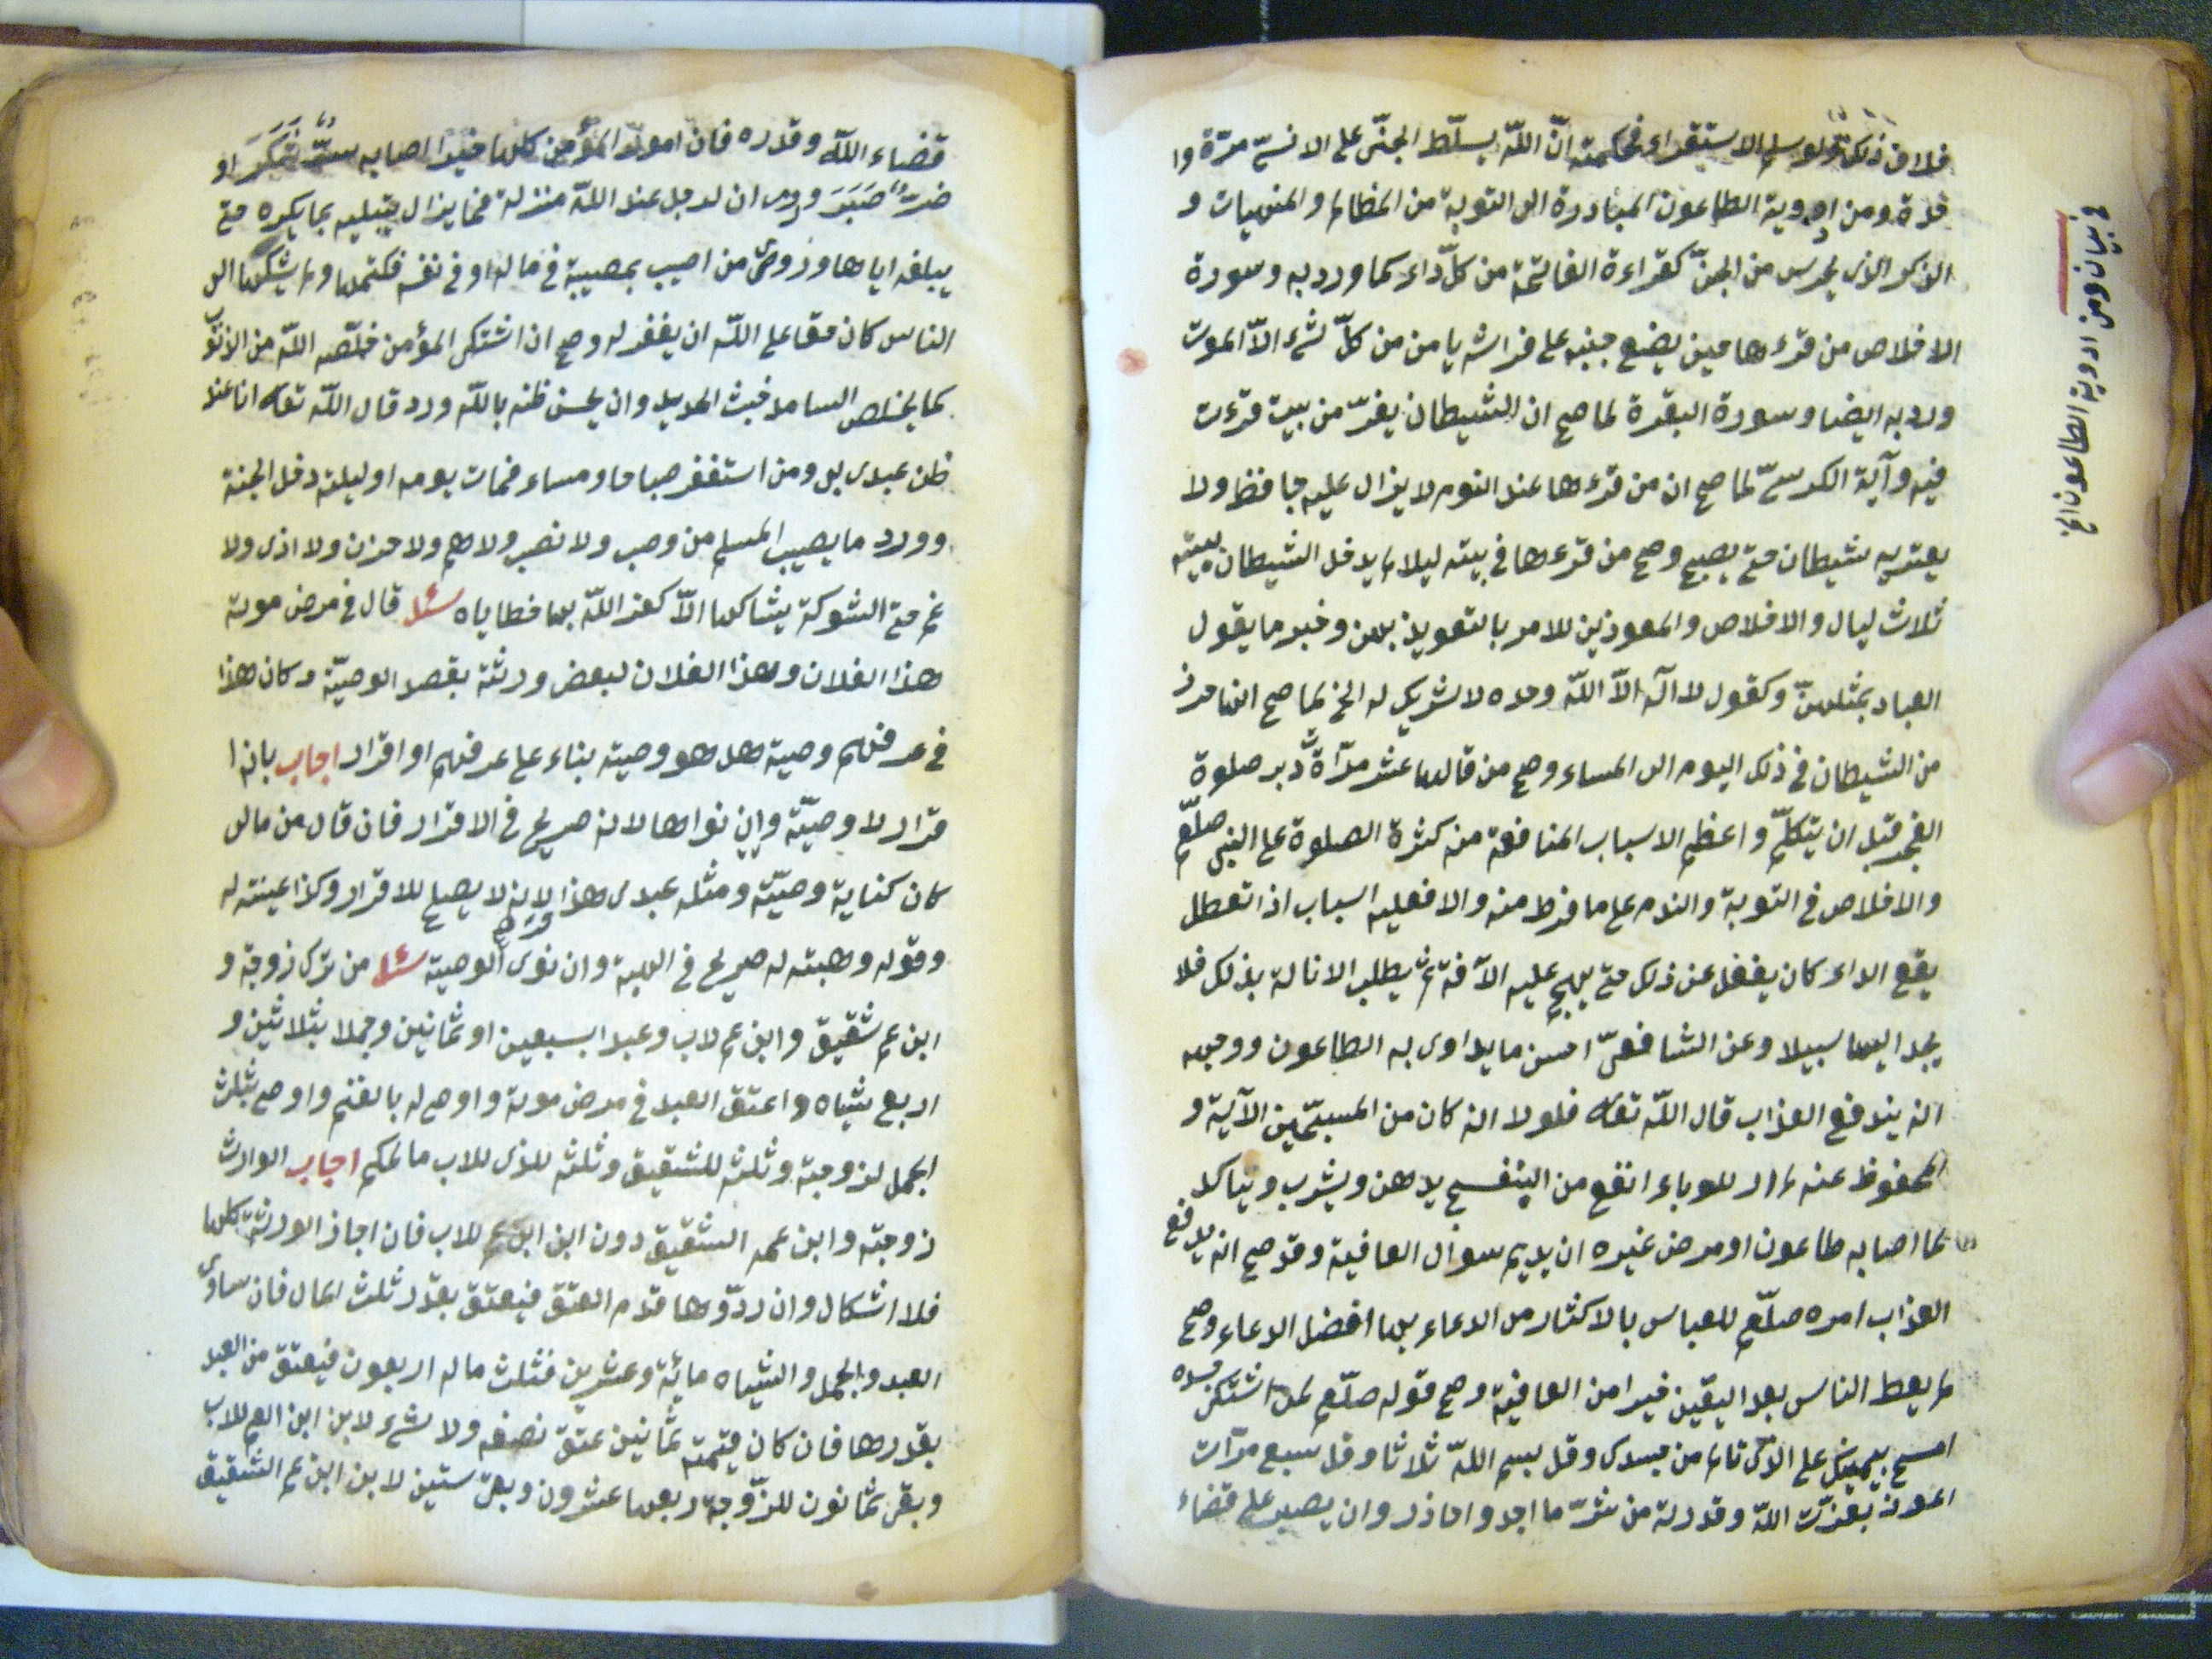 فلان ذلك ولو سلم الاستقراء فحكمته انّ اللّه يسلّط الجنّى على الانسىّ مرّة وا
خرة ومن ادوية الطاعون المبادرة الى التوبة من المظالم والمنهيات و
الذكر الذى يحرس من الجنّ كقراءة الفاتحة من كلّ داء كما ورد به وسورة
الاخلاص من قرءها حين يضع جنبه على فراشه يامن من كلّ شىء الاّ الموت
ورد به ايضا وسورة البقرة لما صح ان الشيطان يفرّ من بيت قرءت
فيه وآية الكرسىّ لما صح ان من قرءها عند النوم لا يزال عليه حافظ ولا
يعتريه شيطان حتى يصبح وصح من قرءها فى بيته ليلا لم يدخل الشيطان بيته
ثلاث ليال والاخلاص والمعوذتين للامر بالتعويذ بهن وخبر ما يقول
العباد بمثلهنّ وكقول لا اله الاّ اللّه وحده لا شريك له الخ لما صح انها حرز
من الشيطان فى ذلك اليوم الى المساء وصح من قالها عشر مرّاة دبر صلوة
الفجر قبل ان يتكلّم واعظم الاسباب المنافعة منه كثرة الصلوة على النبى صلّعم
والاخلاص فى التوبة والندم على ما فرط منه والا فعليه اسباب اذا تعطل
يقع الداء كان يغفل عن ذلك حتى يهجم عليه الآفة ثم يطلب الانالة بذلك فلا
يجد اليها سبيلا وعن الشافعىّ احسن ما يداوى به الطاعون ووجهه
انه يندفع العذاب قال اللّه تعالى فلولا انه كان من المسبّحين الآية و
المحفوظ عنه لم ار للوباء انفع من البنفسج يدهن ويشرب ويتاكد
لما اصابه طاعون او مرض غيره ان يديم سوأل العافية وقد صح انه يدفع
العذاب امره صلّعم للعباس بالاكثار من الدعاء بها افضل الدعاء وصح
لم يعط الناس بعد اليقين خيرا من العافية وصح قوله صلّعم لمن اشتكى جسده
امسح بيمينك على الذى تالم من جسدك وقل بسم اللّه ثلاثا وقل سبع مرّات
اعوذ بعزّت اللّه وقدرته من شرّ ما اجد واحاذر وان يصبر على قضاء
فى بيان ومن ادوية الطاعون الخ
قضاء اللّه وقدره فان امور المؤمن كلها خير اصابه شكر او
ضرّ صبر وورد ان لرجل عند اللّه منزلة فما يزال يبتليه بما يكره حتى
يبلغه اياها وروى من اصيب بمصيبة فى ماله او فى نفسه فكتمها ولم يشكها الى
الناس كان حقا على اللّه ان يغفر له وصح ان اشتكى المؤمن خلّصه اللّه من الذنوب
كما يخلص خبث الحديد وان يحسن ظنه باللّه ورد قال اللّه تعالى انا عند
ظن عبدى بى ومن استغفر صباحا ومساء فمات يومه او ليلته دخل الجنة
وورد ما يصيب المسلم من وصب ولا نصب ولا هم ولا حزن ولا اذى ولا
غم حتى الشوكة يشاكها الاّ كفر اللّه بها خطاياه سئل قال فى مرض موته
هذا الفلان وهذا الفلان لبعض ورثته بقصد الوصيّة وكان هذا
فى عرفهم وصية هل هو وصية بناء على عرفهم او اقرار اجاب بان ا
قرار لا وصيّة وان نواها لانه صريح فى الاقرار فان قال من مالى
كان كناية وصيّة ومثله عبدى هذا لانه لا يصلح للاقرار وكذا عينته له
وقوله وهبته له صريح فى الهبة وان نوى الوصية سئل من ترك زوجة و
ابن عم شقيق وابن عم لاب وعبدا بسبعين او ثمانين وجملا بثلاثين و
اربع شياه واعتق العبد فى مرض موته واوصى له بالغنم واوصى بثلث
الجمل لزوجته وثلثه للشقيق وثلثه للذى للاب ما الحكم اجاب الوارث
زوجته وابن عمه الشقيق دون ابن ابن عم للاب فان اجاز الورثة كلها
فلا اشكال وان ردّوها قدم العتق فيعتق بقدر ثلث المال فان ساوى
العبد والجمل والشياه مائة وعشرين فثلث ماله اربعون فيعتق من العبد
بقدرها فان كان قيمته ثمانين عتق نصفه ولا شىء لابن ابن العم للاب
وبقى ثمانون للزّوجة ربعها عشرون وبقى ستين لابن ابن عم الشقيق